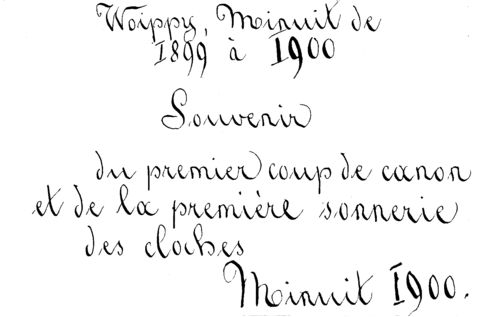 Woippy, Minuit de
1899 à 1900
Souvenir
du premier coup de canon
et de la première sonnerie
des cloches
Minuit 1900.